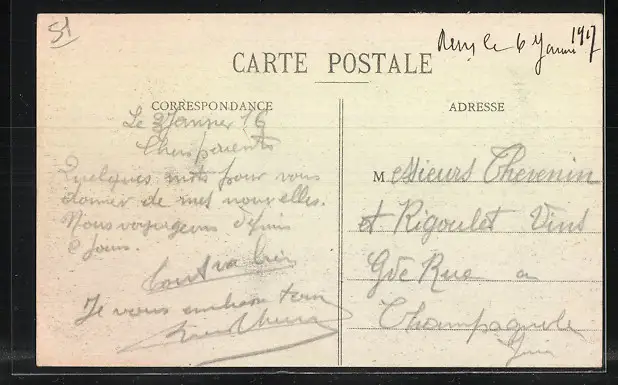 51
CARTE POSTALE
le 6 1917
CORRESPONDANCE
Le 2 Janvier 16
Chers parents
Quelques mots pour vous
donner de mes nouvelles.
Nous voyageons depuis
2 jours.
Tout va bien
Je vous embrasse
ADRESSE
Messieurs Thevenin
et Rigoulet Vins
Gde Rue a
Champagnole
Jura